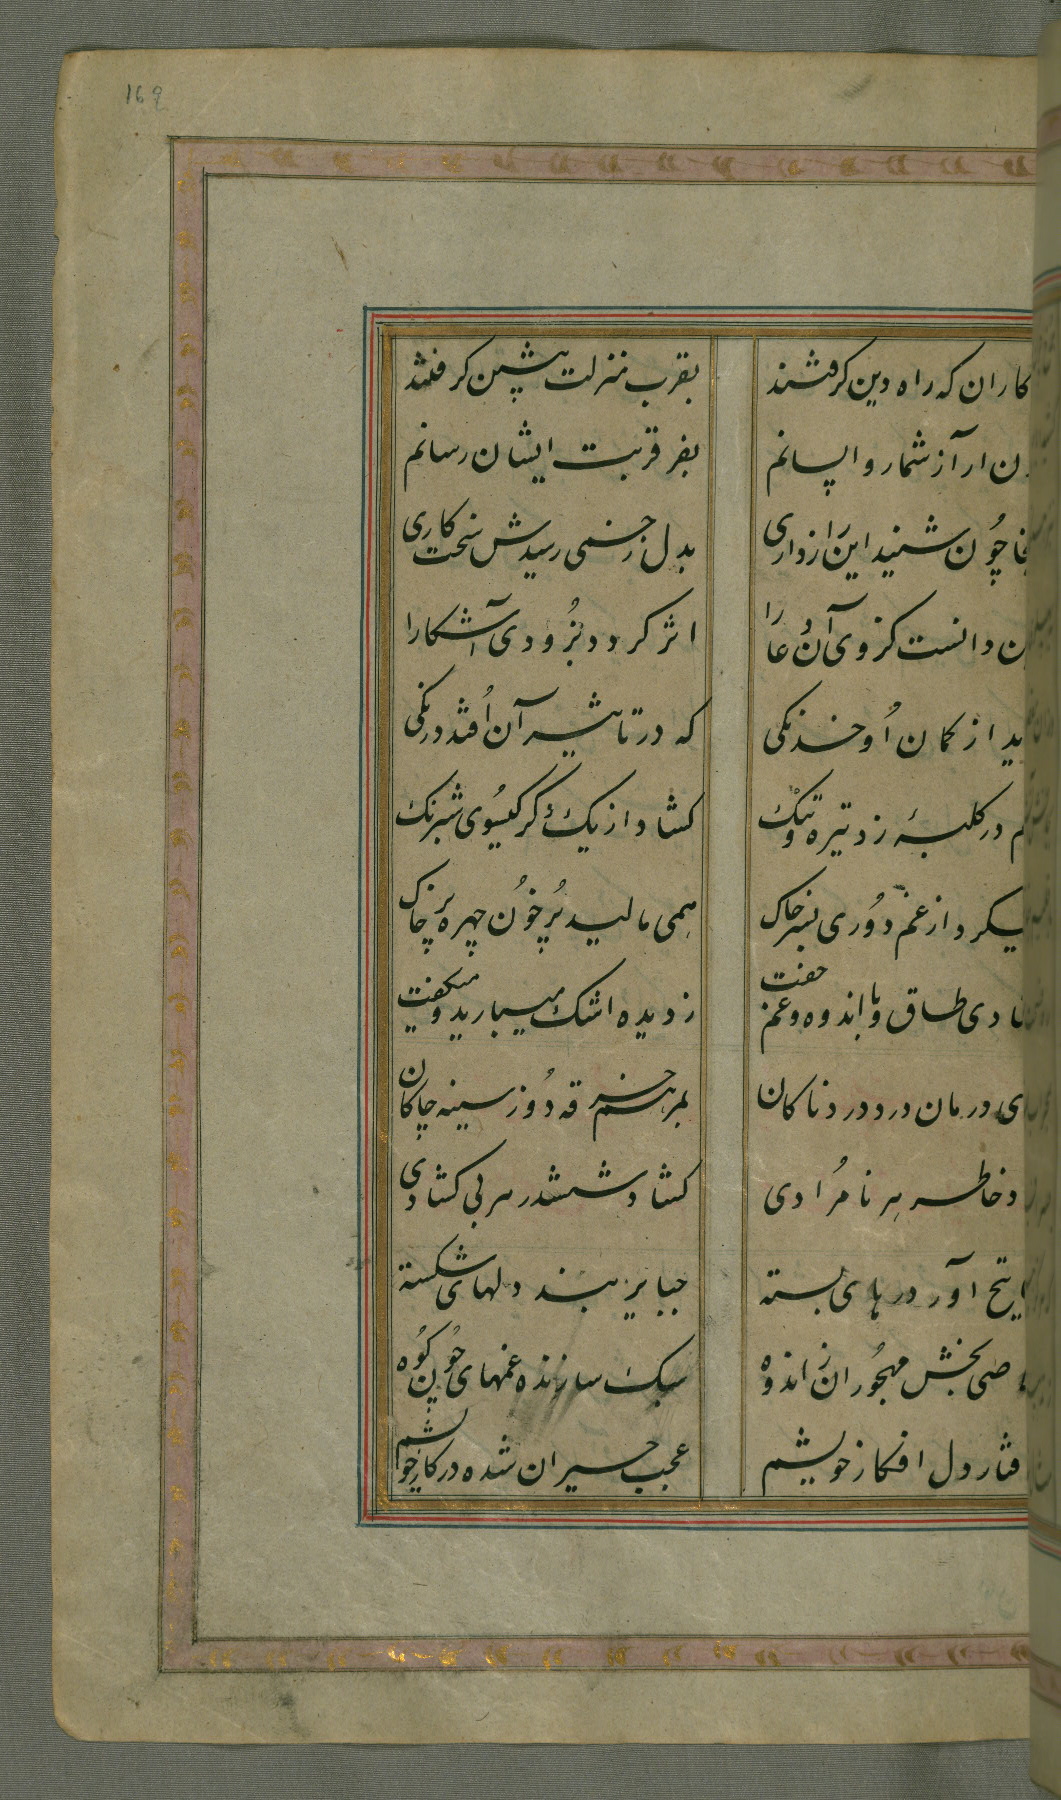 169
کاران که راه دین گرفتند بقرب منزلت پیشین گرفتند
ن ار آز شمار واپسانم بفر قربت ایشان رسانم
چون شنید این رازداری بدل زخمی رسیدش سخت کاری
ن دانست کز وی آن دعا را اثر گردد بزودی آشکارا
ید از کمان او خدنکی که در تاثیر آن افتد درنکی
م در کلبهٔ زد تیره و تنک کشاد از یک گره کیسوی شبرنک
میکرد از غم دوری بسر خاک همی مالید پر خون چهره بر خاک
دی طاق و با اندوه و غم جفت ز دیده اشک میبارید و میکفت
ی درمان درد دردناکان بمرهم خرقه دوز سینه چاکان
خاطر هر نامرادی کشاد ششدر هر بی کشادی
آور درهای بسته جبایر بند دلهای شکسته
صی بخش مهجوران ز اندوه سبک سازنده غمهای چون کوه
فتار دل افکار خویشم عجب حیران شده در کار خویشم